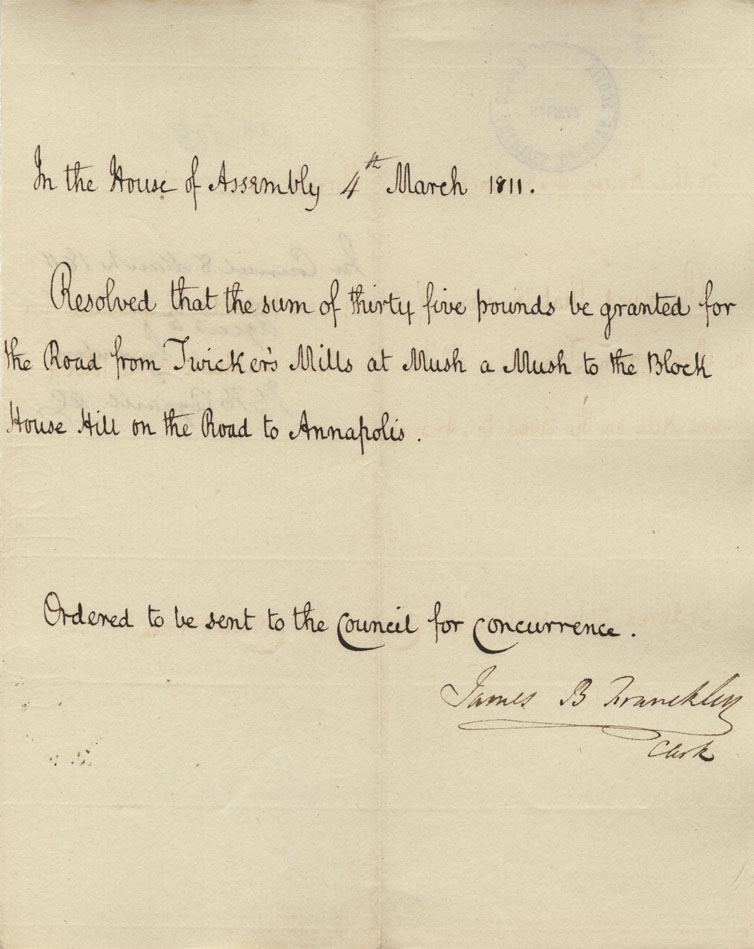 In the House of Assembly 4th March 1811.
Resolved that the sum of thirty five pounds be granted for
the Road from Zwicker's Mills at Mush a Mush to the Block
House Hill on the Road to Annapolis.
Ordered to be sent to the Council for Concurrence.
James B Franckley
Clerk